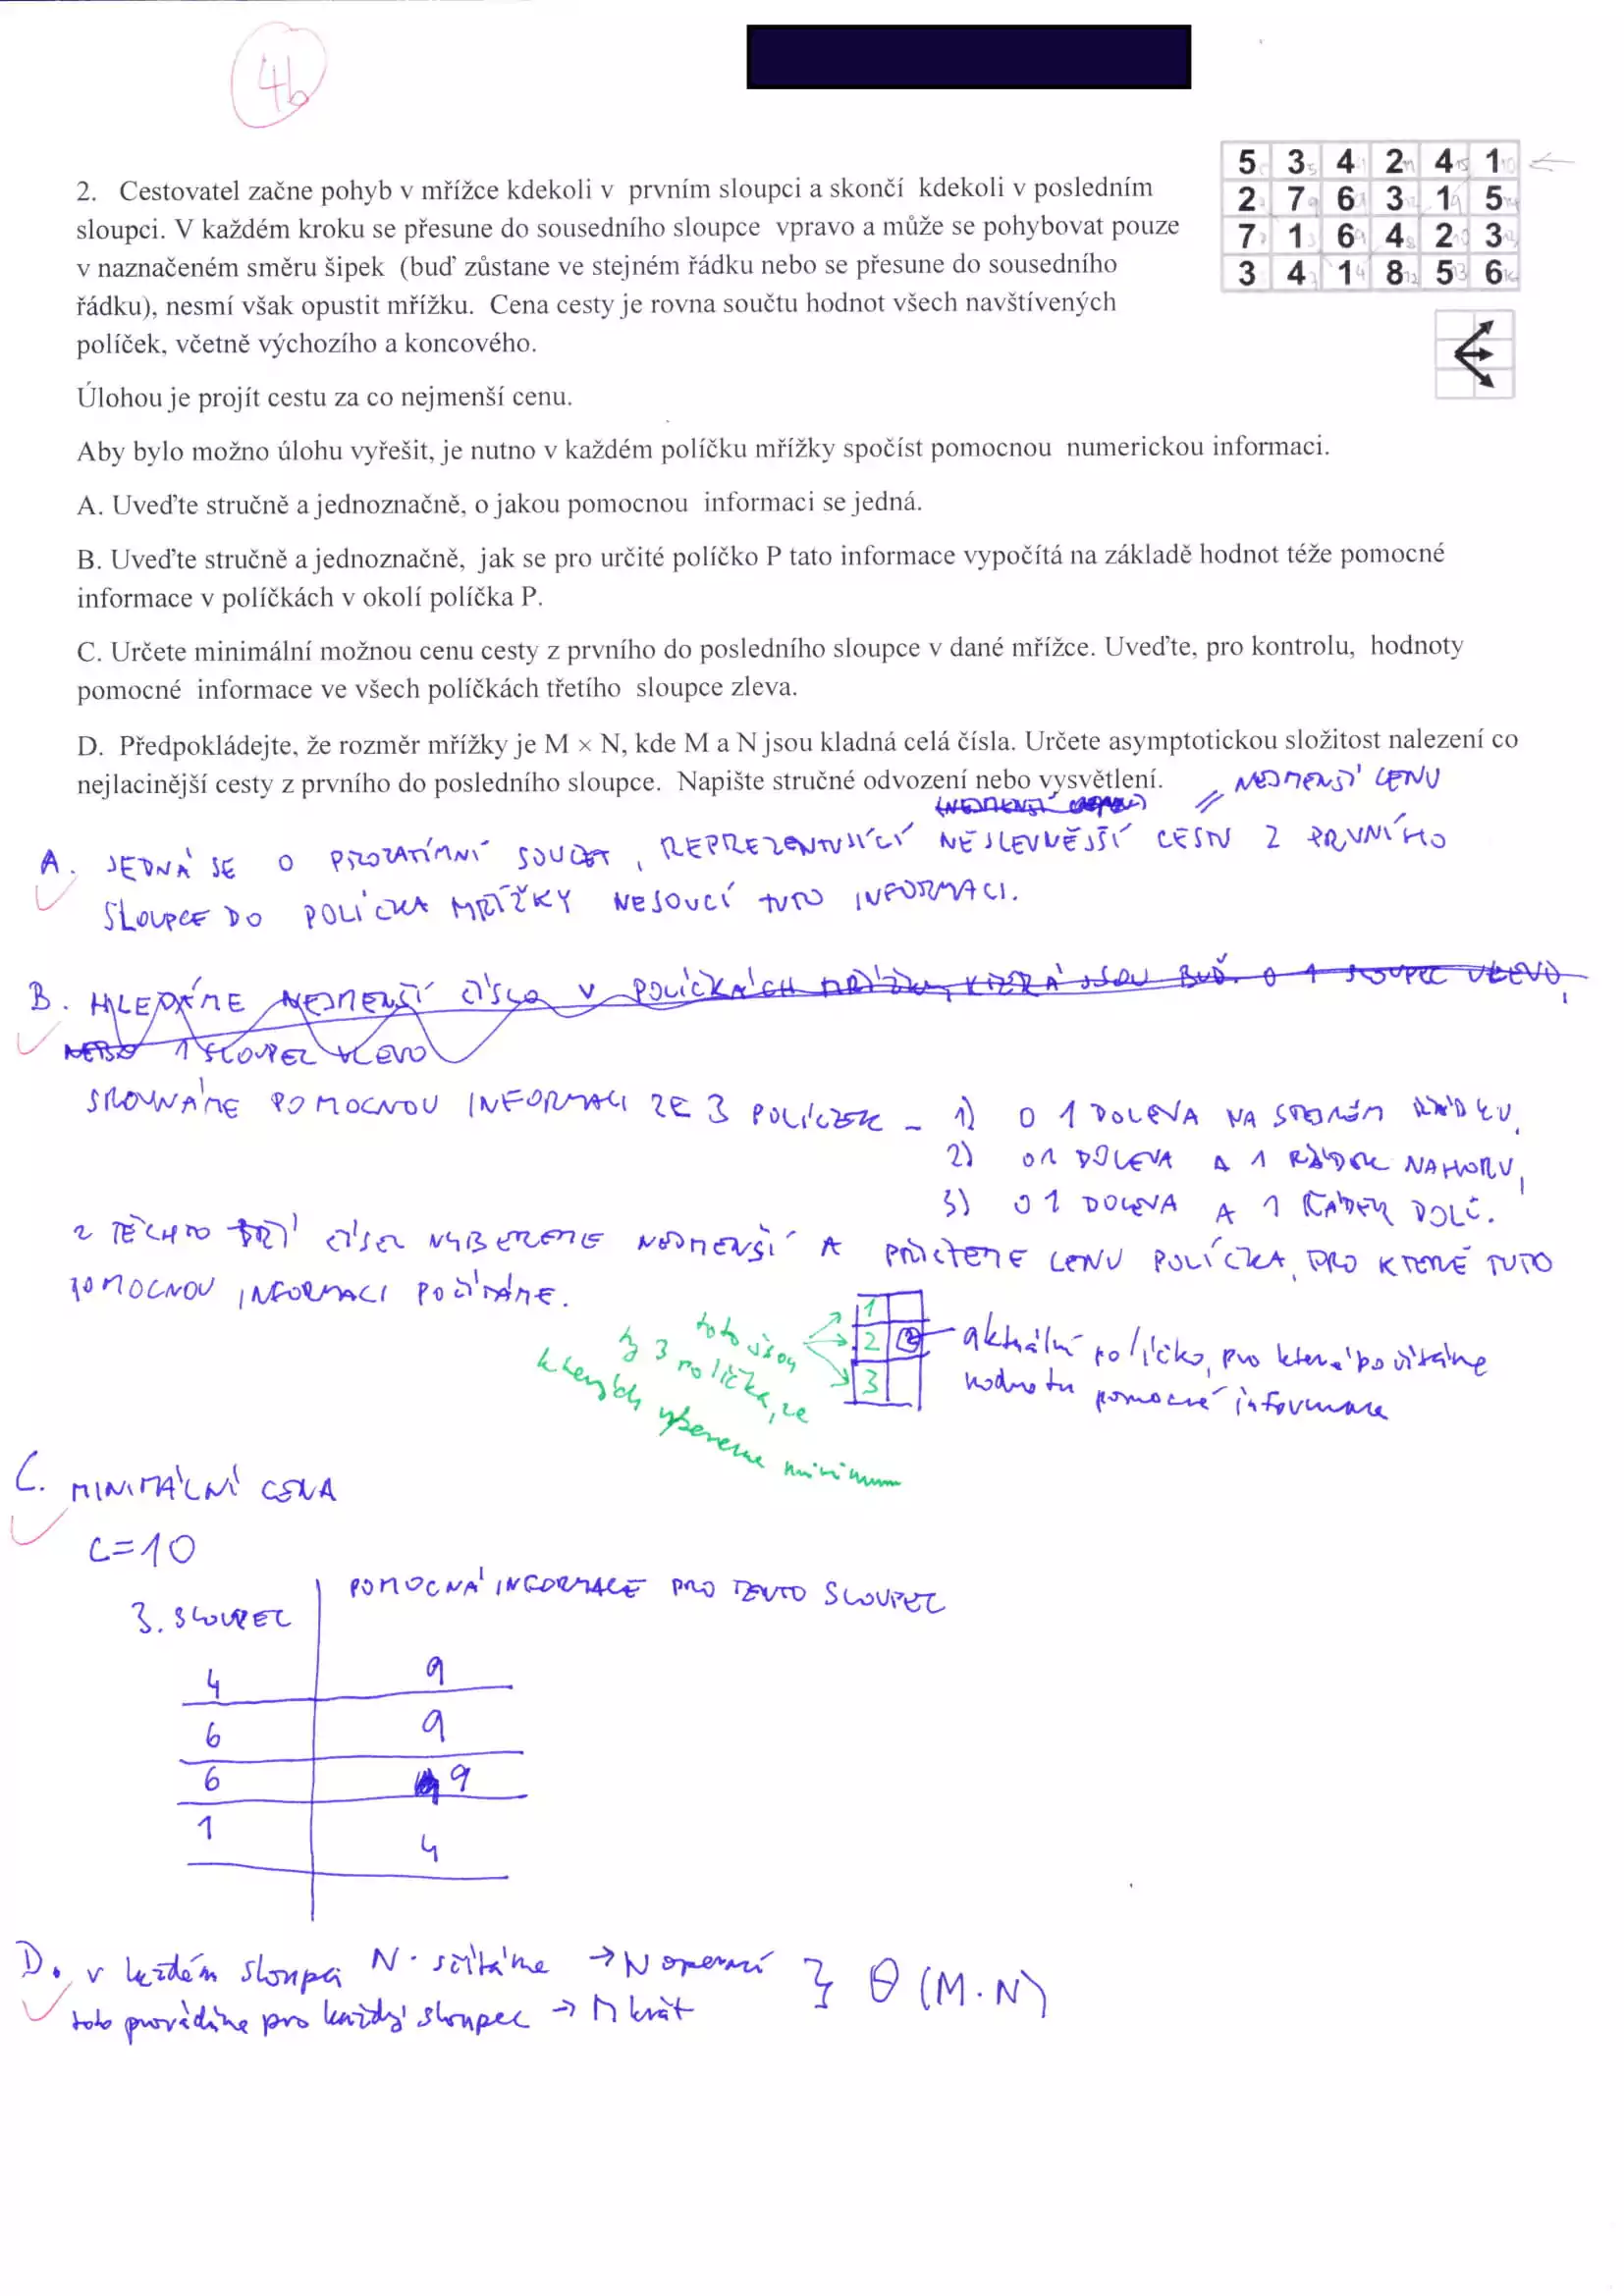 4b
5 3 4 2 4 1
2 7 6 3 1 5
7 1 6 4 2 3
3 4 1 8 5 6
2. Cestovatel začne pohyb v mřížce kdekoli v prvním sloupci a skončí kdekoli v posledním
sloupci. V každém kroku se přesune do sousedního sloupce vpravo a může se pohybovat pouze
v naznačeném směru šipek (buď zůstane ve stejném řádku nebo se přesune do sousedního
řádku), nesmí však opustit mřížku. Cena cesty je rovna součtu hodnot všech navštívených
políček, včetně výchozího a koncového.
Úlohou je projít cestu za co nejmenší cenu.
Aby bylo možno úlohu vyřešit, je nutno v každém políčku mřížky spočíst pomocnou numerickou informaci.
A. Uveďte stručně a jednoznačně, o jakou pomocnou informaci se jedná.
B. Uveďte stručně a jednoznačně, jak se pro určité políčko P tato informace vypočítá na základě hodnot téže pomocné
informace v políčkách v okolí políčka P.
C. Určete minimální možnou cenu cesty z prvního do posledního sloupce v dané mřížce. Uveďte, pro kontrolu, hodnoty
pomocné informace ve všech políčkách třetího sloupce zleva.
D. Předpokládejte, že rozměr mřížky je M × N, kde M a N jsou kladná celá čísla. Určete asymptotickou složitost nalezení co
nejlacinější cesty z prvního do posledního sloupce. Napište stručné odvození nebo vysvětlení.
NEJMENŠÍ CENU
A. JEDNÁ SE O PROZATÍMNÍ SOUČET, REPREZENTUJÍCÍ NEJLEVNĚJŠÍ CESTU Z PRVNÍHO
SLOUPCE DO POLÍČKA MŘÍŽKY NESOUCÍ TUTO INFORMACI.
B. HLEDÁME NEJMENŠÍ ČÍSLO V POLÍČKÁCH MŘÍŽKY, KTERÁ JSOU BUĎ O 1 SLOUPEC VLEVO,
NEBO 1 SLOUPEC VLEVO
SROVNÁME POMOCNOU INFORMACI ZE 3 POLÍČEK - 1) O 1 DOLEVA NA STEJNÉM ŘÁDKU,
2) O 1 DOLEVA A 1 ŘÁDEK NAHORU,
3) O 1 DOLEVA A 1 ŘÁDEK DOLŮ.
Z TĚCHTO TŘÍ ČÍSEL VYBEREME NEJMENŠÍ A PŘIČTEME CENU POLÍČKA, PRO KTERÉ TUTO
POMOCNOU INFORMACI POČÍTÁME.
toto jsou
ty 3 políčka, ze
kterých vybereme minimum
1
2
3
aktuální políčko, pro které počítáme
hodnotu pomocné informace
C. MINIMÁLNÍ CENA
C=10
3. SLOUPEC POMOCNÁ INFORMACE PRO TENTO SLOUPEC
4 9
6 9
6 9
1 4
D. v každém sloupci N · sčítáme → N operací } Θ(M·N)
toto provádíme pro každý sloupec → M krát